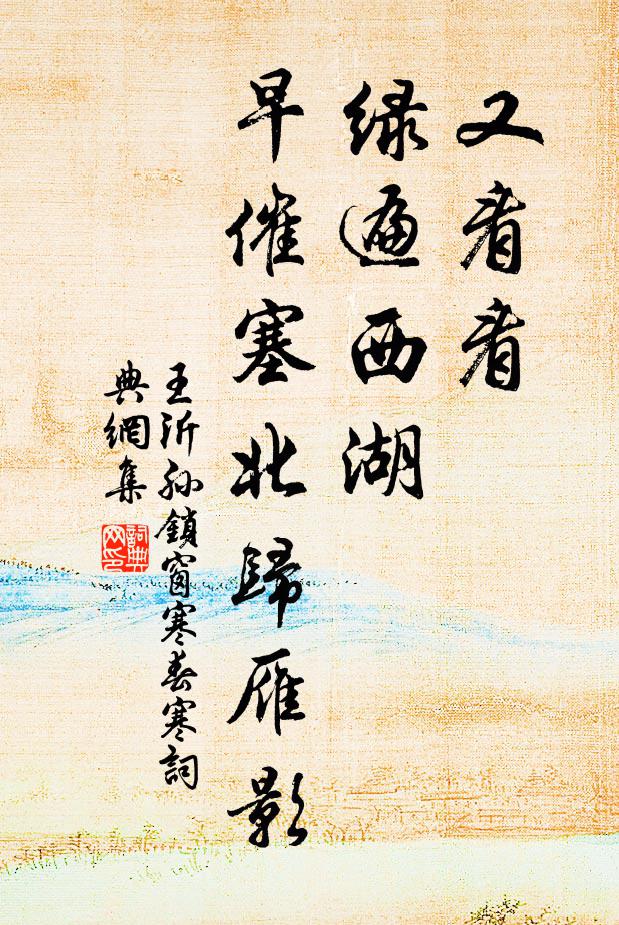 又看看
綠遍西湖
早催塞北歸雁影
王沂孫鎖窗寒春寒詞
典網集
詞典網印